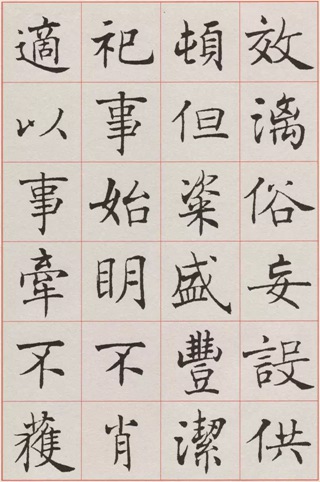 效漓俗妄設供
頓但粢盛豐潔
祀事始明不肖
適以事牽不獲